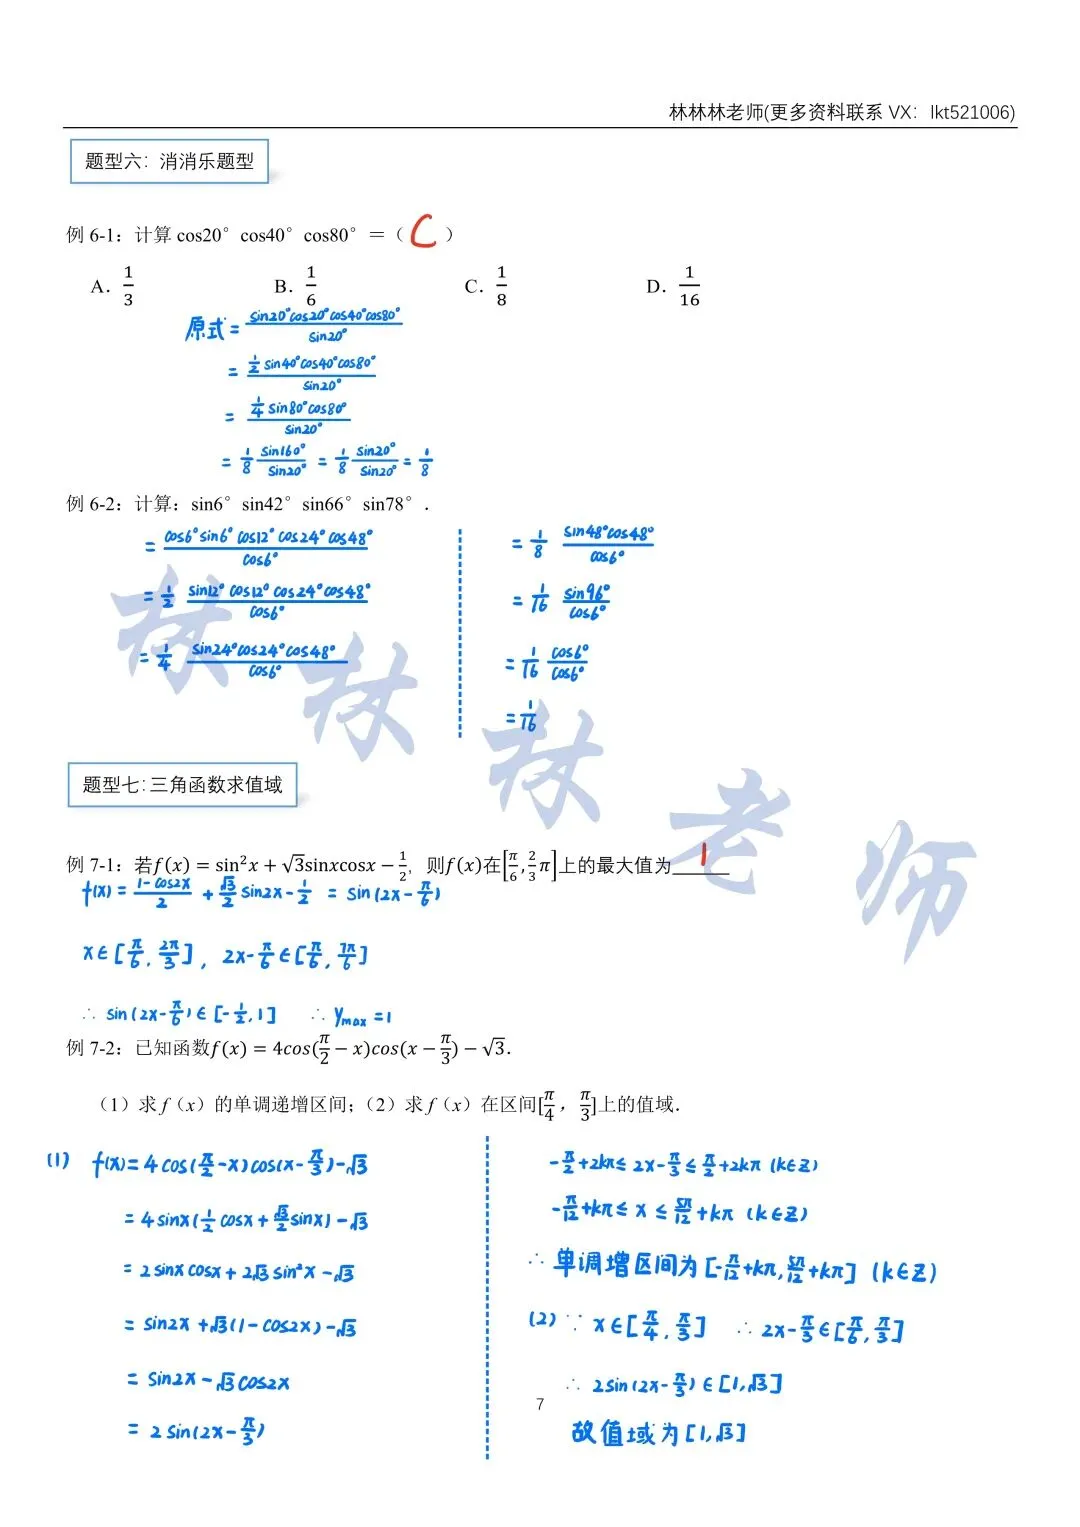 林林林老师(更多资料联系 VX：lkt521006)
题型六：消消乐题型
例 6-1：计算 cos20°cos40°cos80°＝（ C ）
A. 1/3 B. 1/6 C. 1/8 D. 1/16
原式 = sin20°cos20°cos40°cos80° / sin20°
= 1/2 sin40°cos40°cos80° / sin20°
= 1/4 sin80°cos80° / sin20°
= 1/8 sin160°/sin20° = 1/8 sin20°/sin20° = 1/8
例 6-2：计算：sin6°sin42°sin66°sin78°.
= cos6°sin6°cos12°cos24°cos48° / cos6°
= 1/2 sin12°cos12°cos24°cos48° / cos6°
= 1/4 sin24°cos24°cos48° / cos6°
= 1/8 sin48°cos48° / cos6°
= 1/16 sin96°/cos6°
= 1/16 cos6°/cos6°
= 1/16
林林林老师
题型七：三角函数求值域
例 7-1：若f(x) = sin²x + √3sinxcosx − 1/2，则f(x)在[π/6, 2/3 π]上的最大值为 1
f(x) = (1-cos2x)/2 + √3/2 sin2x - 1/2 = sin(2x-π/6)
x∈[π/6, 2π/3], 2x-π/6∈[π/6, 7π/6]
∴ sin(2x-π/6)∈[-1/2,1] ∴ ymax=1
例 7-2：已知函数f(x) = 4cos(π/2 − x)cos(x − π/3) − √3.
（1）求 f（x）的单调递增区间；（2）求 f（x）在区间[π/4，π/3]上的值域.
(1) f(x)=4cos(π/2-x)cos(x-π/3)-√3
=4sinx(1/2 cosx+√3/2 sinx)-√3
=2sinxcosx+2√3sin²x-√3
=sin2x+√3(1-cos2x)-√3
=sin2x-√3cos2x
=2sin(2x-π/3)
-π/2+2kπ≤2x-π/3≤π/2+2kπ (k∈Z)
-π/12+kπ≤x≤5π/12+kπ (k∈Z)
∴单调增区间为[-π/12+kπ,5π/12+kπ] (k∈Z)
(2) ∵ x∈[π/4,π/3] ∴ 2x-π/3∈[π/6,π/3]
∴ 2sin(2x-π/3)∈[1,√3]
故值域为[1,√3]
7